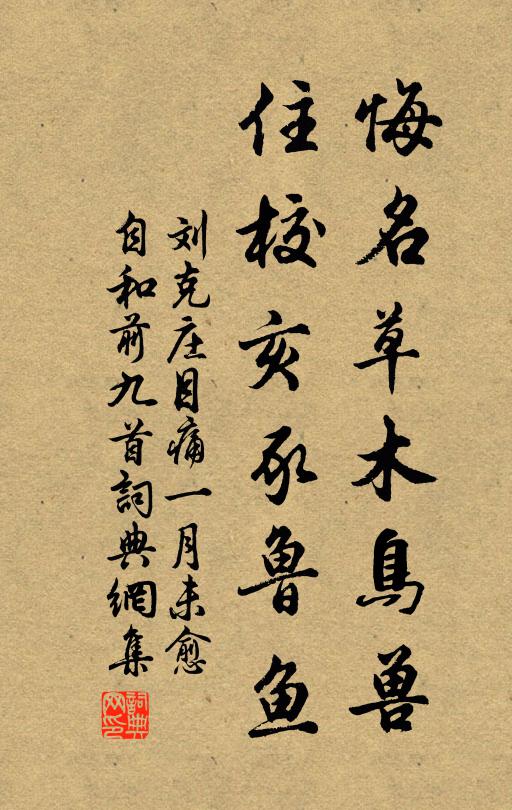 悔名草木鳥兽
住校亥豕魯鱼
刘克庄目痛一月未愈
自和前九首詞典網集
詞典网印